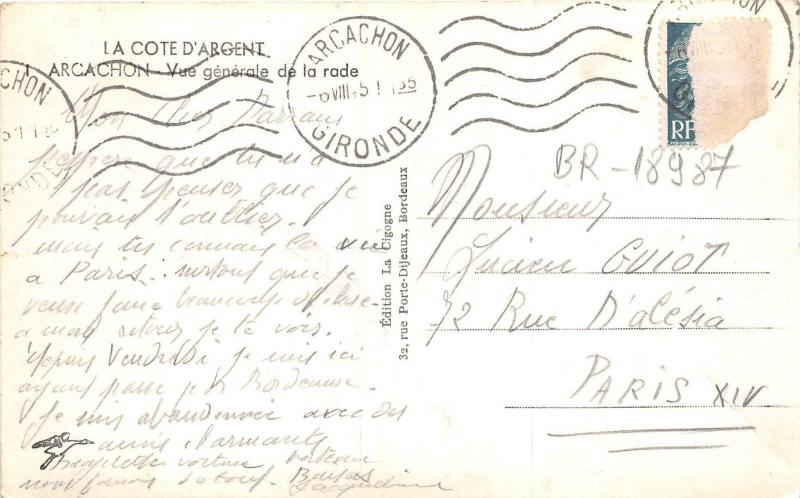 LA COTE D'ARGENT
1 ARCACHON - Vue générale de la rade
ARCACHON
-6 VIII 51 1135
GIRONDE
RF
BR-18987
Mon cher
J'espère que tu n'as
pas penser que je
pouvais t'oublier.
mais tu connais la vie
à Paris. surtout que je
veux faire beaucoup de
à mon retour je te vois.
depuis Vendredi je suis ici
ayant passé par Bordeaux.
Je suis avec des
amis charmants
voiture bateau
nous
Jacqueline
Edition La Cigogne
32, rue Porte-Dijeaux, Bordeaux
Monsieur
Lucien GUIOT
72 Rue D'alésia
PARIS XIV